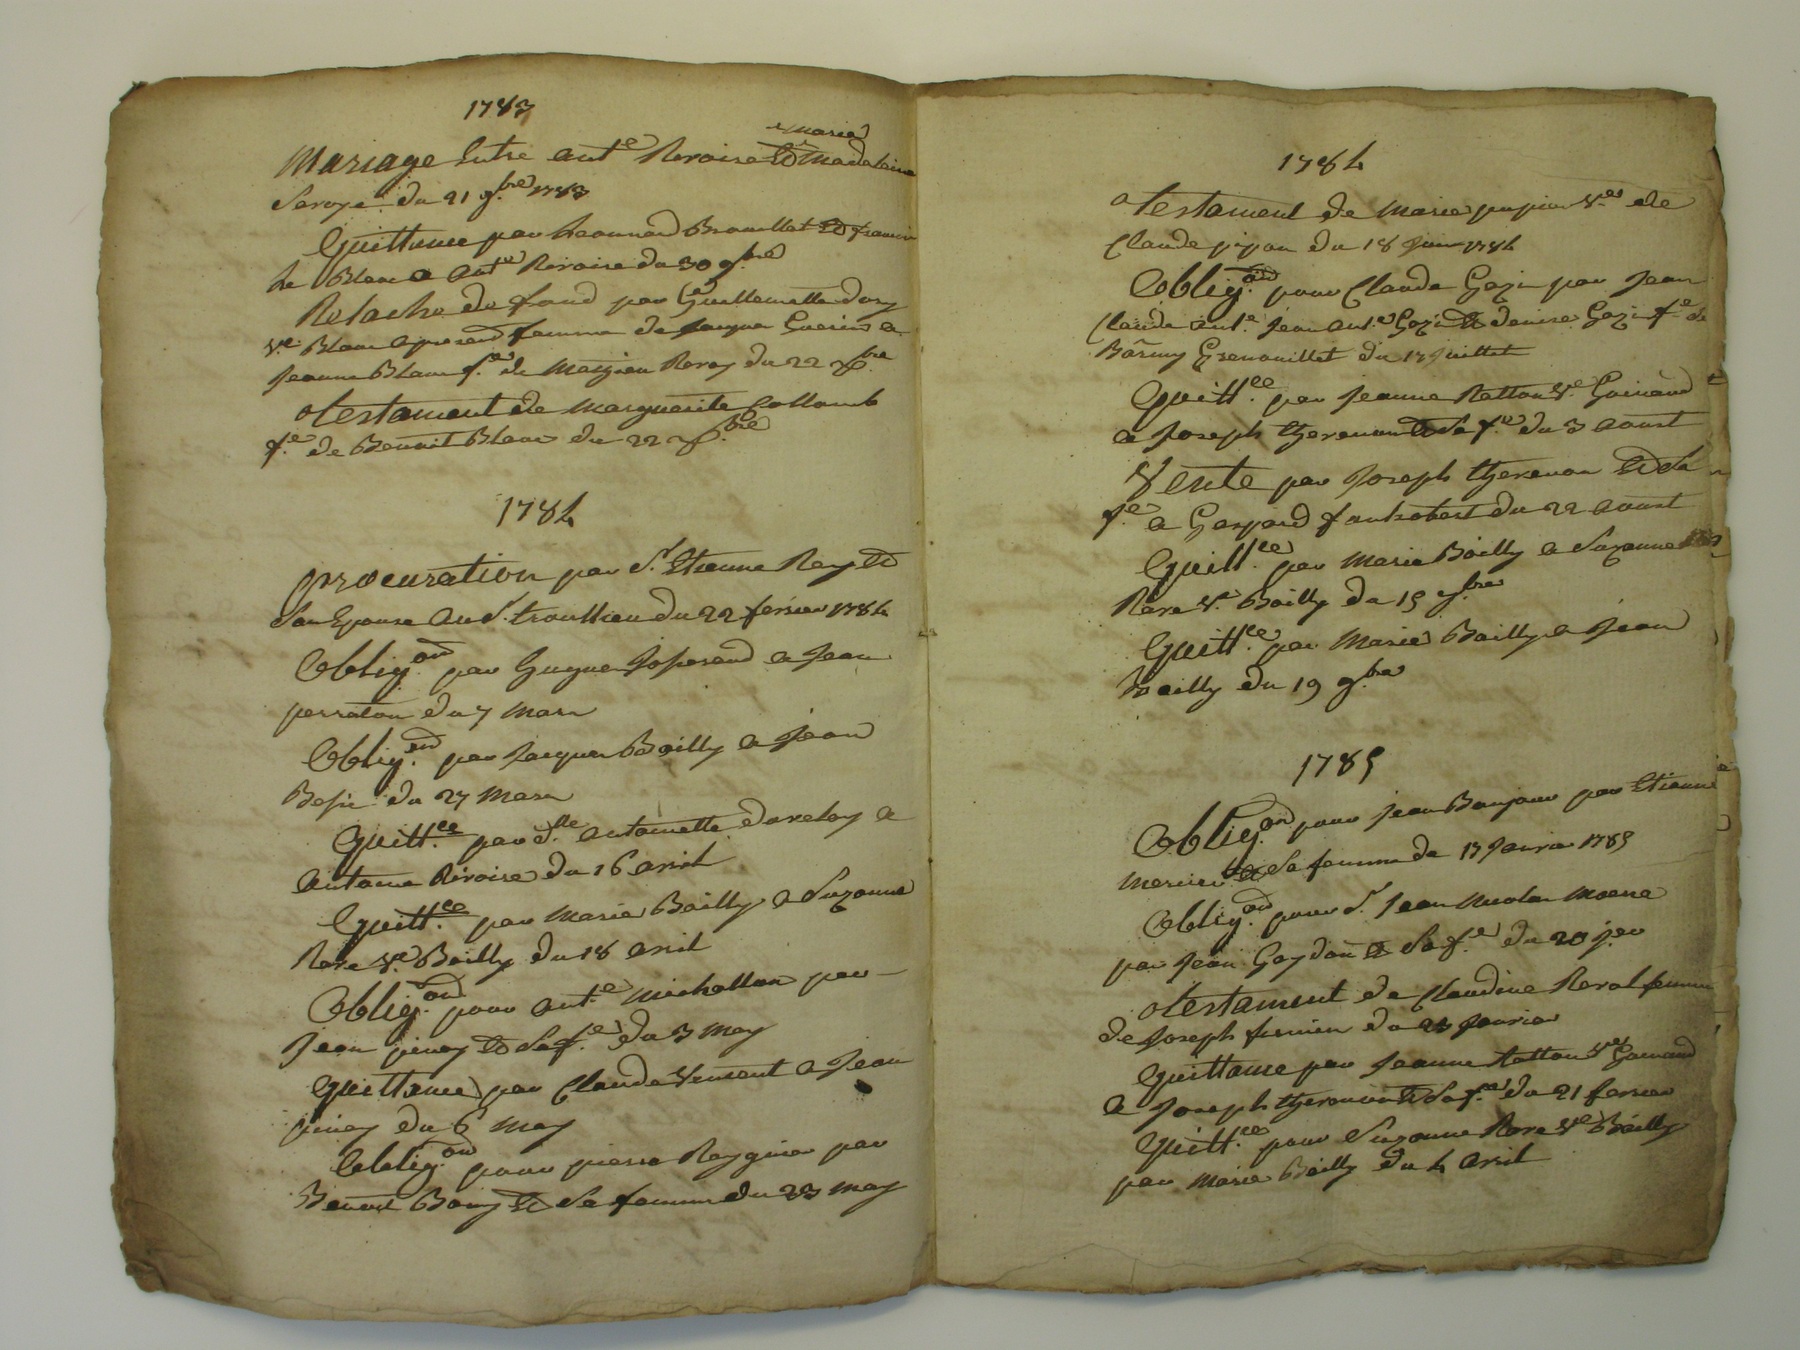 1783
Marie
Mariage Entre ant.e Roraire Et Madelaine
du 21 9.bre 1783
Quittance par Leonnard Brouillet Et francois
Le Blanc a ant.e Roraire du 30 9.bre
Relache de fond par Guillemette
v.e Blanc apresent femme de Jacque Guerin a
Jeanne Blanc f.e de Rerey du 22 X.bre
testament de Marguerite Collomb
f.e de Benoit Blanc du 22 X.bre
1784
procuration par S.r Etienne Rey Et
Son Epouse au S.r du 22 fevrier 1784
Oblig.on par Joserand a Jean
perraton du 7 Mars
Oblig.on par Jacques Bailly a Jean
du 27 Mars
Quitt.ce par d.lle antoinette a
antoine Roraire du 16 avril
Quitt.ce par Marie Bailly a Suzanne
Rore v.e Bailly du 18 avril
Oblig.on pour ant.e Michallon par
Jean pinay Et Sa f.e du 3 May
Quittance par Claude Vincent a Jean
pinay du 6 May
Oblig.on pour pierre par
Benoit Et Sa femme du 23 May
1784
testament de Marie v.e de
Claude du 18 Juin 1784
Oblig.on pour Claude Gazi par Jean
Claude ant.e Jean ant.e Gazi Et denise Gazi f.e de
Grenouillet du 17 Juillet
Quitt.ce par Jeanne Ratton v.e
a Joseph thevenon Et Sa f.e du 3 aoust
Vente par Joseph thevenon Et Sa
f.e a Gaspard du 22 aoust
Quitt.ce par Marie Bailly a Suzanne
Rore v.e Bailly du 15 9.bre
Quitt.ce par Marie Bailly a Jean
Bailly du 19 9.bre
1785
Oblig.on pour Jean Banjour par Etienne
Mercier Et Sa femme du 17 Janvier 1785
Oblig.on pour S.r Jean Nicolas
par Jean Gaydon Et Sa f.e du 20 J.er
testament de Claudine Reral femme
de Joseph du 23 Janvier
Quittance par Jeanne Ratton v.e
a Joseph thevenon Et Sa f.e du 21 fevrier
Quitt.ce pour Suzanne Rore v.e Bailly
par Marie Bailly du 4 avril